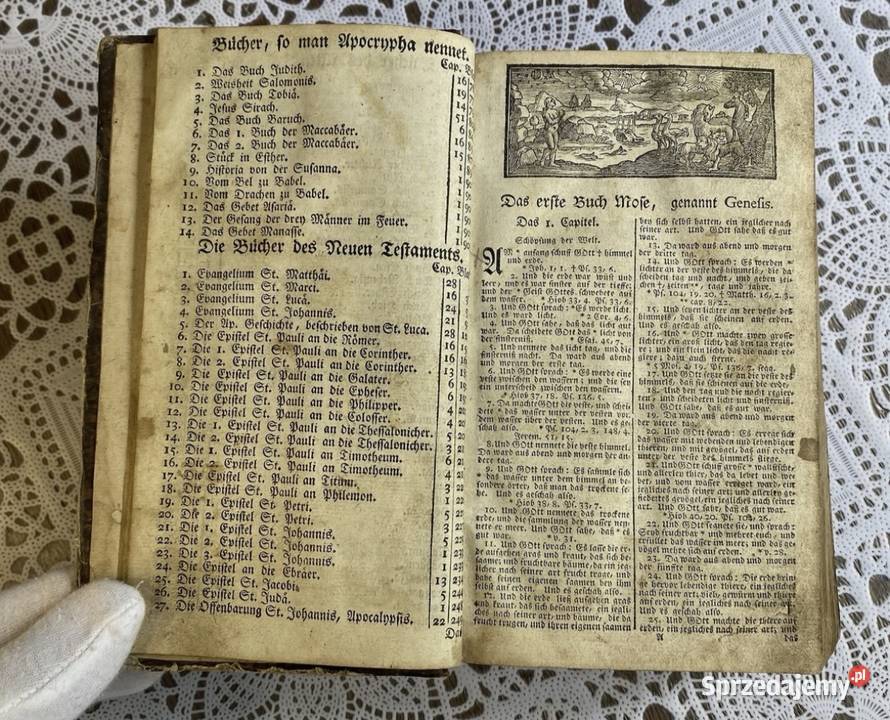 Bücher, so man Apocrypha nennet.
Cap.
1. Das Buch Judith. 16
2. Weisheit Salomonis. 19
3. Das Buch Tobiä. 14
4. Jesus Sirach. 51
5. Das Buch Baruch. 6
6. Das 1. Buch der Maccabäer. 16
7. Das 2. Buch der Maccabäer. 15
8. Stück in Esther.
9. Historia von der Susanna. 1
10. Vom Bel zu Babel. 1
11. Vom Drachen zu Babel. 1
12. Das Gebet Asariä. 1
13. Der Gesang der drey Männer im Feuer. 1
14. Das Gebet Manasse. 1
Die Bücher des Neuen Testaments,
Cap.
1. Evangelium St. Matthäi. 28
2. Evangelium St. Marci. 16
3. Evangelium St. Lucä. 24
4. Evangelium St. Johannis. 21
5. Der Ap. Geschichte, beschrieben von St. Luca. 28
6. Die Epistel St. Pauli an die Römer. 16
7. Die 1. Epistel St. Pauli an die Corinther. 16
8. Die 2. Epistel St. Pauli an die Corinther. 13
9. Die Epistel St. Pauli an die Galater. 6
10. Die Epistel St. Pauli an die Epheser. 6
11. Die Epistel St. Pauli an die Philipper. 4
12. Die Epistel St. Pauli an die Colosser. 4
13. Die 1. Epistel St. Pauli an die Thessalonicher. 5
14. Die 2. Epistel St. Pauli an die Thessalonicher. 3
15. Die 1. Epistel St. Pauli an Timotheum. 6
16. Die 2. Epistel St. Pauli an Timotheum. 4
17. Die Epistel St. Pauli an Titum. 3
18. Die Epistel St. Pauli an Philemon. 1
19. Die 1. Epistel St. Petri. 5
20. Die 2. Epistel St. Petri. 3
21. Die 1. Epistel St. Johannis. 5
22. Die 2. Epistel St. Johannis. 1
23. Die 3. Epistel St. Johannis. 1
24. Die Epistel an die Ebräer. 13
25. Die Epistel St. Jacobi. 5
26. Die Epistel St. Judä. 1
27. Die Offenbarung St. Johannis, Apocalypsis. 22
Das erste Buch Mose, genannt Genesis.
Das 1. Capitel.
Schöpfung der Welt.
AM * anfang schuff GOtt † himmel
und erde.
* Joh. 1, 1. † Ps. 33, 6.
2. Und die erde war wüst und
leer, und es war finster auf der tieffe;
und der * Geist GOttes schwebete auf
dem wasser. * Hiob 33, 4. Ps. 33, 6.
3. Und GOtt sprach: * Es werde licht.
Und es ward licht. * 2 Cor. 4, 6.
4. Und GOtt sahe, daß das licht gut
war. Da scheidete GOtt das * licht von
der finsterniß. * Esai. 45, 7.
5. Und nennete das licht tag, und die
finsterniß nacht. Da ward aus abend
und morgen der erste tag.
6. Und GOtt sprach: * Es werde eine
veste zwischen den wassern; und die sey
ein unterscheid zwischen den wassern.
* Hiob 37, 18. Ps. 136, 5.
7. Da machte GOtt die veste, und schei-
dete * das wasser unter der vesten von
dem wasser über der vesten. Und es ge-
schah also. * Ps. 104, 2. 3. 148, 4.
Jerem. 51, 15.
8. Und GOtt nennete die veste himmel.
Da ward aus abend und morgen der an-
dere tag.
9. Und GOtt sprach: Es sammle sich
* das wasser unter dem himmel an be-
sondere örter, daß man das trockene se-
he. Und es geschah also.
* Hiob 38, 8. Ps. 33, 7.
10. Und GOtt nennete das trockene
erde, und die sammlung der wasser nen-
nete er meer. Und GOtt sahe, daß * es
gut war.
11. Und GOtt sprach: Es lasse die er-
de aufgehen gras und kraut, das sich be-
saame; und fruchtbare bäume, da ein jeg-
licher nach seiner art frucht trage, und
habe seinen eigenen saamen bey ihm
selbst auf erden. Und es geschah also.
12. Und die erde ließ aufgehen gras
und kraut, das sich besaamete, ein jegli-
ches nach seiner art; und bäume, die da
frucht trugen, und ihren eigenen saamen
bey sich selbst hatten, ein jeglicher nach
seiner art. Und GOtt sahe daß es gut
war.
13. Da ward aus abend und morgen
der dritte tag.
14. Und GOtt sprach: Es werden *
lichter an der veste des himmels, die da
scheiden tag und nacht, und geben zei-
chen, zeiten, tage und jahre.
* Ps. 104, 19. 20.
15. Und seyen lichter an der veste des
himmels, daß sie scheinen auf erden.
Und es geschah also.
16. Und * GOtt machte zwey grosse
lichter; ein groß licht, das den tag regie-
re; und ein klein licht, das die nacht re-
giere; dazu auch sterne.
* 5 Mos. 4, 19. Ps. 136, 7. seqq.
17. Und GOtt setzte sie an die veste des
himmels, daß sie schienen auf die erde,
18. Und den tag und die nacht regier-
ten, und scheideten licht und finsterniß.
Und GOtt sahe, daß es gut war.
19. Da ward aus abend und morgen
der vierte tag.
20. Und GOtt sprach: Es errege sich
das wasser mit webenden und lebendigen
thieren, und mit gevögel, das auf erden
unter der veste des himmels fliege.
21. Und GOtt schuff grosse * wallfische,
und allerley thier, das da lebet und we-
bet, und vom wasser erreget ward, ein
jegliches nach seiner art; und allerley ge-
fiedertes gevögel, ein jegliches nach seiner
art. Und GOtt sahe, daß es gut war.
* Hiob 40, 20. Ps. 104, 26.
22. Und GOtt segnete sie, und sprach:
Seyd fruchtbar * und mehret euch, und
erfüllet das wasser im meer; und das ge-
vögel mehre sich auf erden. * v. 28.
23. Da ward aus abend und morgen
der fünfte tag.
24. Und GOtt sprach: Die erde brin-
ge hervor lebendige thiere, ein jegliches
nach seiner art; vieh, gewürm und thiere
auf erden, ein jegliches nach seiner art.
Und es geschah also.
25. Und GOtt machte die thiere auf
erden, ein jegliches nach seiner art, und
A das
Sprzedajemy.pl